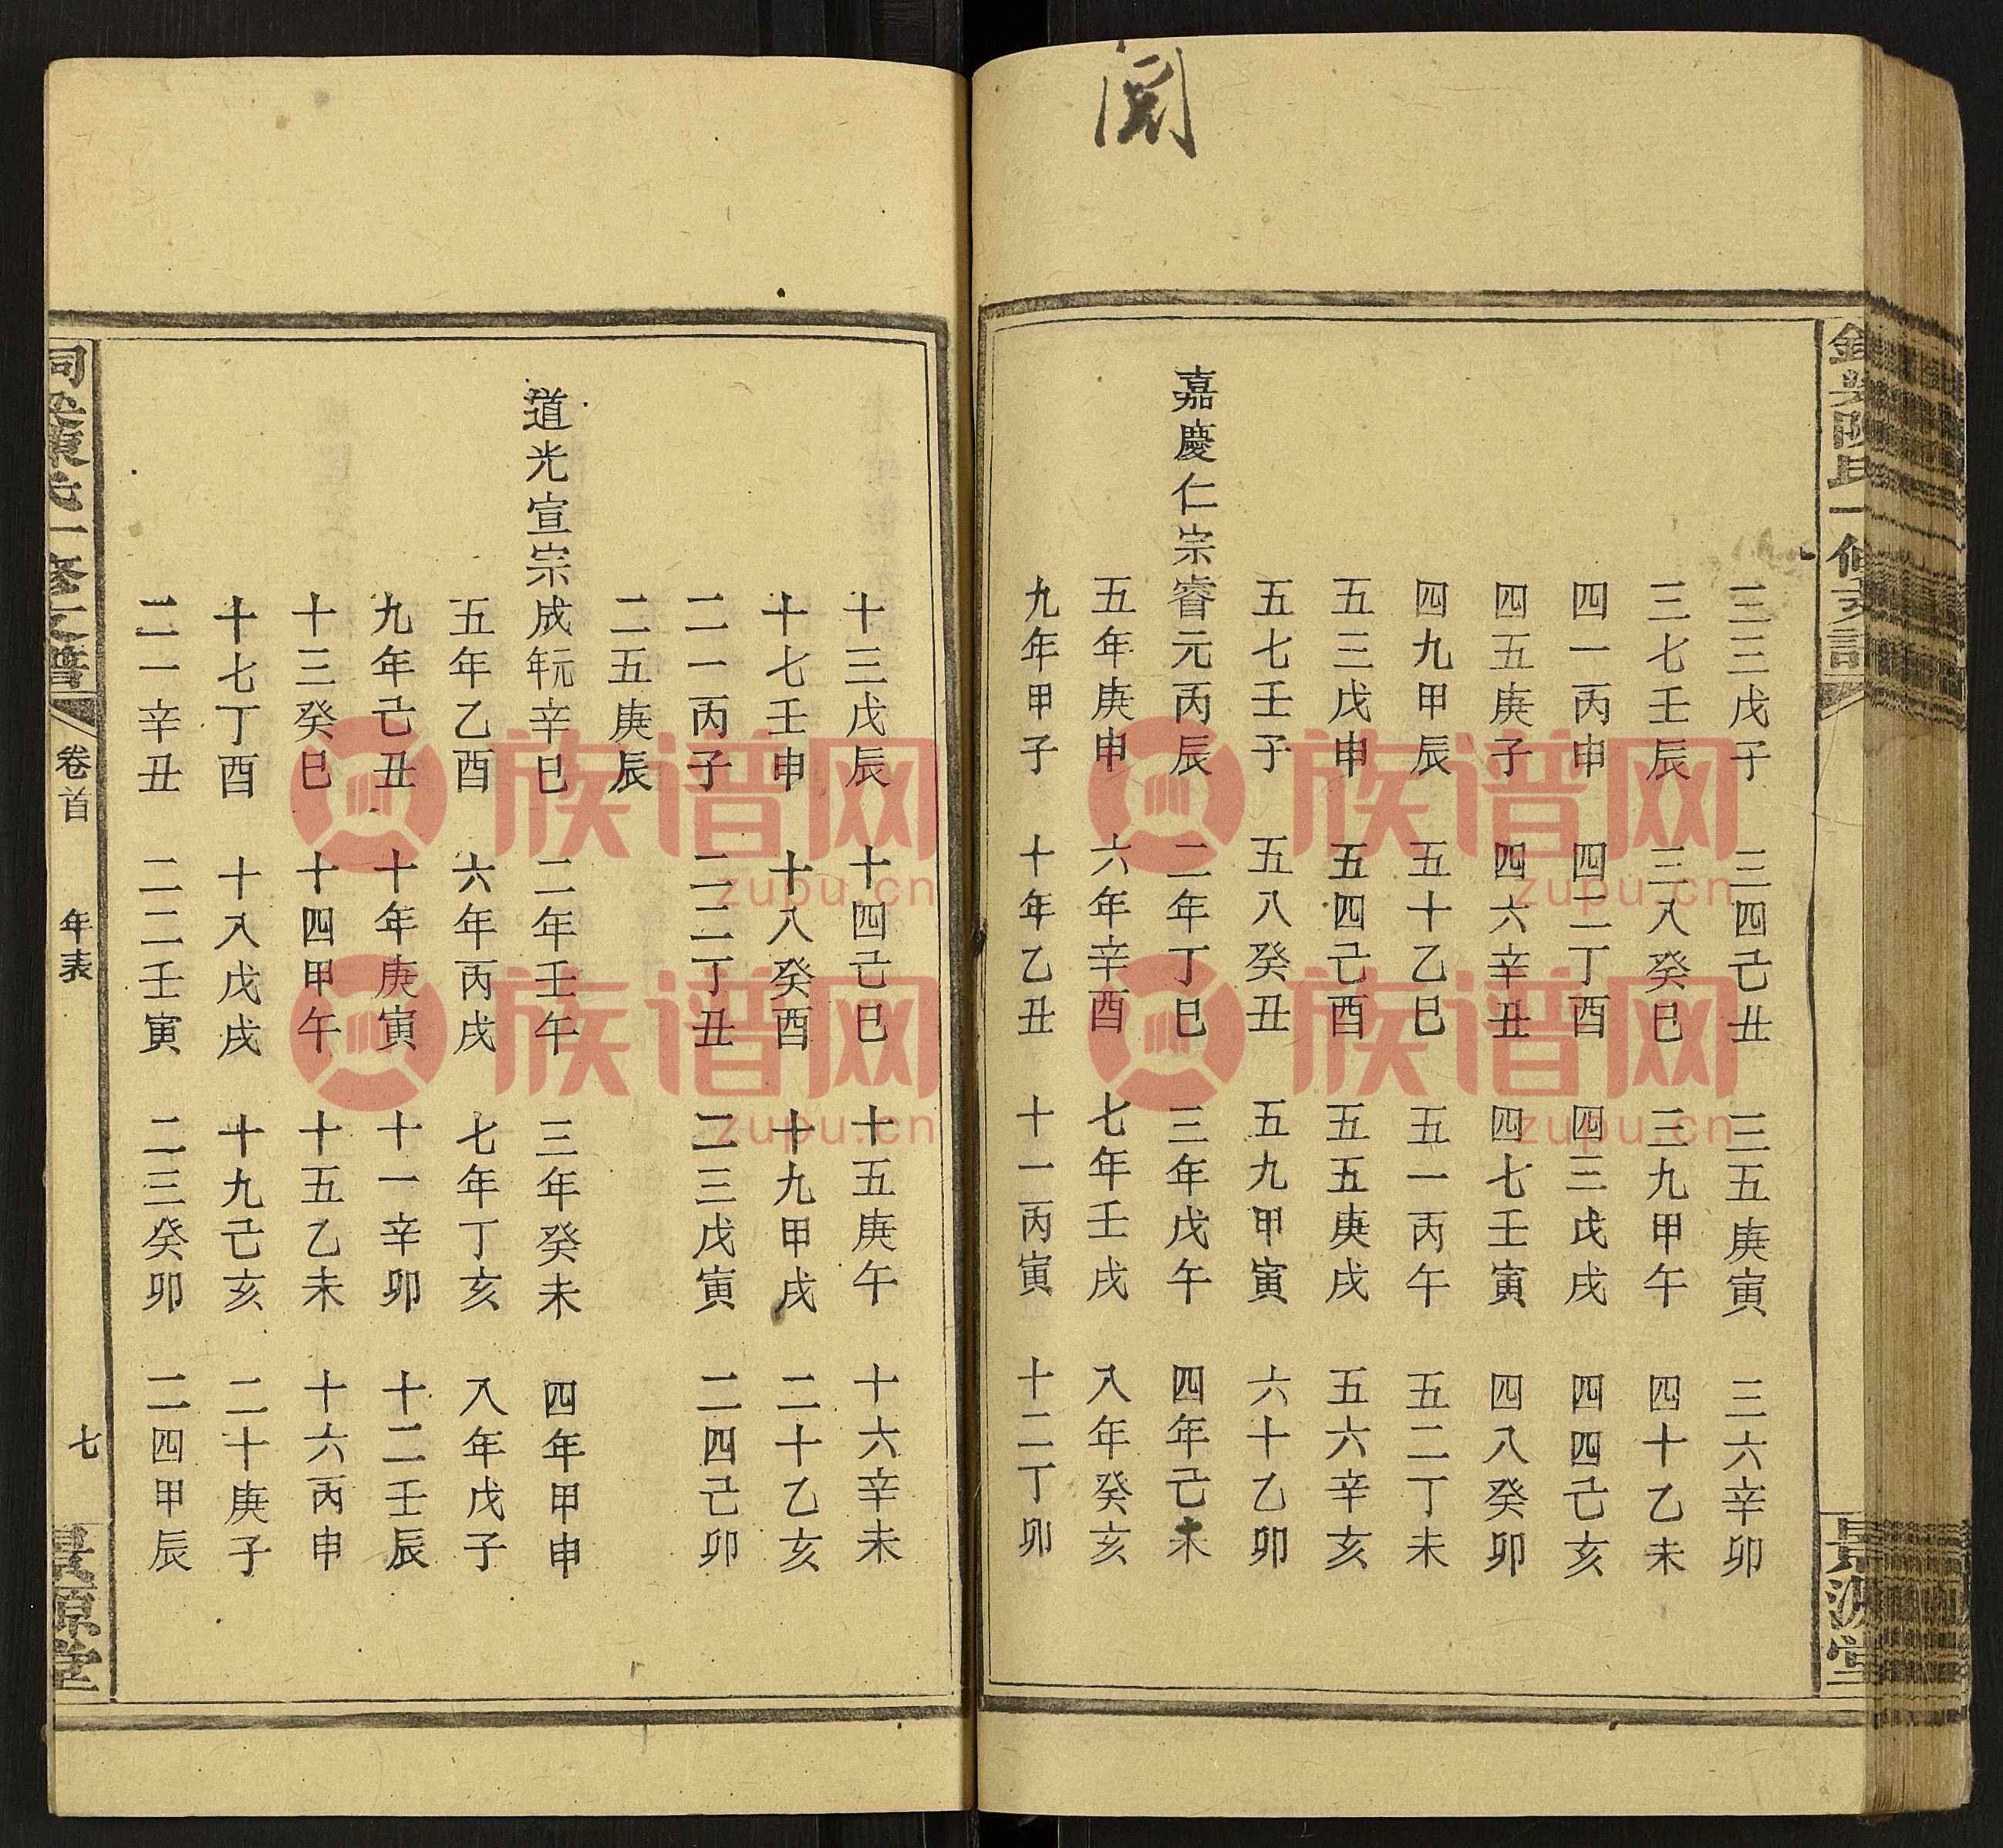 三三戊子 三四己丑 三五庚寅 三六辛卯
三七壬辰 三八癸巳 三九甲午 四十乙未
四一丙申 四二丁酉 四三戊戌 四四己亥
四五庚子 四六辛丑 四七壬寅 四八癸卯
四九甲辰 五十乙巳 五一丙午 五二丁未
五三戊申 五四己酉 五五庚戌 五六辛亥
五七壬子 五八癸丑 五九甲寅 六十乙卯
嘉慶仁宗睿元丙辰 二年丁巳 三年戊午 四年己未
五年庚申 六年辛酉 七年壬戌 八年癸亥
九年甲子 十年乙丑 十一丙寅 十二丁卯
十三戊辰 十四己巳 十五庚午 十六辛未
十七壬申 十八癸酉 十九甲戌 二十乙亥
二一丙子 二二丁丑 二三戊寅 二四己卯
二五庚辰
道光宣宗成元年辛巳 二年壬午 三年癸未 四年甲申
五年乙酉 六年丙戌 七年丁亥 八年戊子
九年己丑 十年庚寅 十一辛卯 十二壬辰
十三癸巳 十四甲午 十五乙未 十六丙申
十七丁酉 十八戊戌 十九己亥 二十庚子
二一辛丑 二二壬寅 二三癸卯 二四甲辰
卷首 年表 七
族谱网
zupu.cn
族谱网
zupu.cn
族谱网
zupu.cn
族谱网
zupu.cn